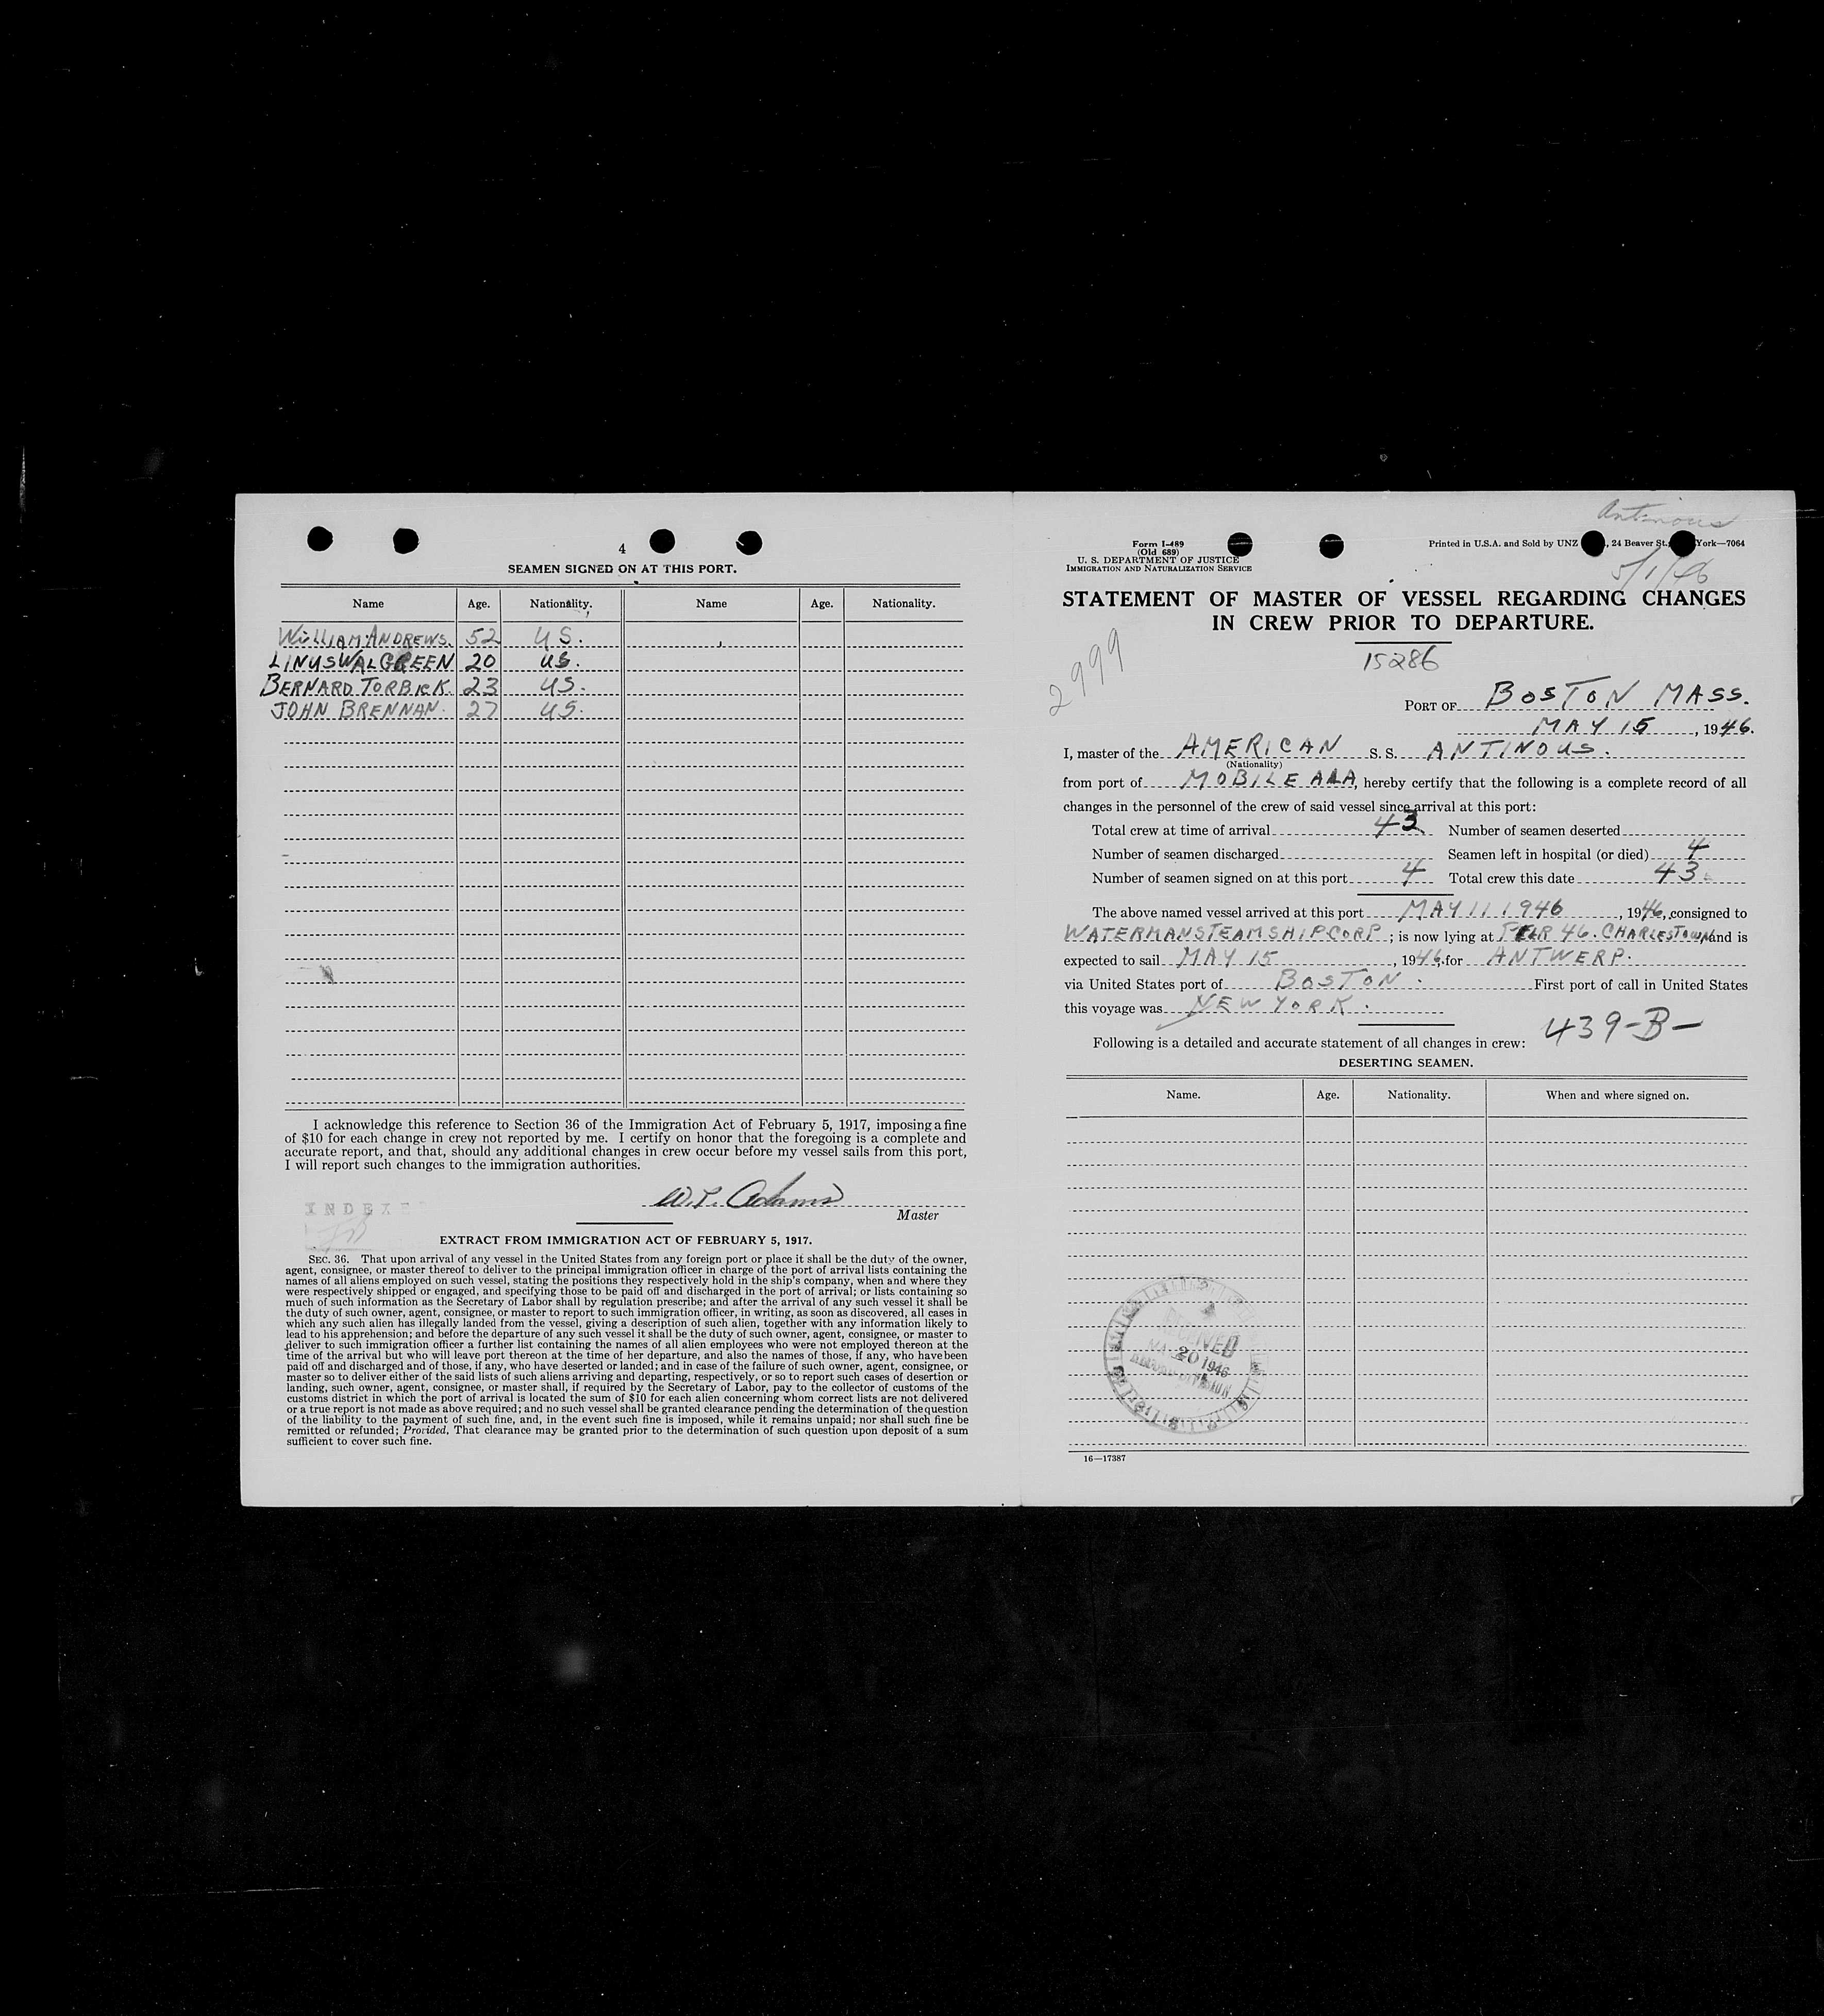 4
SEAMEN SIGNED ON AT THIS PORT.
Name Age. Nationality. Name Age. Nationality.
WILLIAM ANDREWS. 52 U.S.
LINUS WALGREEN 20 US.
BERNARD TORBICK. 23 US.
JOHN BRENNAN. 27 US.
I acknowledge this reference to Section 36 of the Immigration Act of February 5, 1917, imposing a fine
of $10 for each change in crew not reported by me. I certify on honor that the foregoing is a complete and
accurate report, and that, should any additional changes in crew occur before my vessel sails from this port,
I will report such changes to the immigration authorities.
W.P. Adams
Master
INDEXE
EXTRACT FROM IMMIGRATION ACT OF FEBRUARY 5, 1917.
SEC. 36. That upon arrival of any vessel in the United States from any foreign port or place it shall be the duty of the owner,
agent, consignee, or master thereof to deliver to the principal immigration officer in charge of the port of arrival lists containing the
names of all aliens employed on such vessel, stating the positions they respectively hold in the ship's company, when and where they
were respectively shipped or engaged, and specifying those to be paid off and discharged in the port of arrival; or lists containing so
much of such information as the Secretary of Labor shall by regulation prescribe; and after the arrival of any such vessel it shall be
the duty of such owner, agent, consignee, or master to report to such immigration officer, in writing, as soon as discovered, all cases in
which any such alien has illegally landed from the vessel, giving a description of such alien, together with any information likely to
lead to his apprehension; and before the departure of any such vessel it shall be the duty of such owner, agent, consignee, or master to
deliver to such immigration officer a further list containing the names of all alien employees who were not employed thereon at the
time of the arrival but who will leave port thereon at the time of her departure, and also the names of those, if any, who have been
paid off and discharged and of those, if any, who have deserted or landed; and in case of the failure of such owner, agent, consignee, or
master so to deliver either of the said lists of such aliens arriving and departing, respectively, or so to report such cases of desertion or
landing, such owner, agent, consignee, or master shall, if required by the Secretary of Labor, pay to the collector of customs of the
customs district in which the port of arrival is located the sum of $10 for each alien concerning whom correct lists are not delivered
or a true report is not made as above required; and no such vessel shall be granted clearance pending the determination of the question
of the liability to the payment of such fine, and, in the event such fine is imposed, while it remains unpaid; nor shall such fine be
remitted or refunded; Provided, That clearance may be granted prior to the determination of such question upon deposit of a sum
sufficient to cover such fine.
Antinous
Form I-489
(Old 689)
U. S. DEPARTMENT OF JUSTICE
IMMIGRATION AND NATURALIZATION SERVICE
Printed in U.S.A. and Sold by UNZ , 24 Beaver St., York—7064
5/1/46
STATEMENT OF MASTER OF VESSEL REGARDING CHANGES
IN CREW PRIOR TO DEPARTURE.
2999
15286
PORT OF BOSTON MASS.
MAY 15, 1946.
I, master of the AMERICAN S. S. ANTINOUS.
(Nationality)
from port of MOBILE ALA, hereby certify that the following is a complete record of all
changes in the personnel of the crew of said vessel since arrival at this port:
Total crew at time of arrival 43 Number of seamen deserted
Number of seamen discharged Seamen left in hospital (or died) 4
Number of seamen signed on at this port 4 Total crew this date 43
The above named vessel arrived at this port MAY 11 1946, 1946, consigned to
WATERMAN STEAMSHIP CORP; is now lying at PIER 46. CHARLESTOWN and is
expected to sail MAY 15, 1946, for ANTWERP.
via United States port of BOSTON. First port of call in United States
this voyage was NEW YORK.
439-B-
Following is a detailed and accurate statement of all changes in crew:
DESERTING SEAMEN.
Name. Age. Nationality. When and where signed on.
RECEIVED
20 1946
16—17387